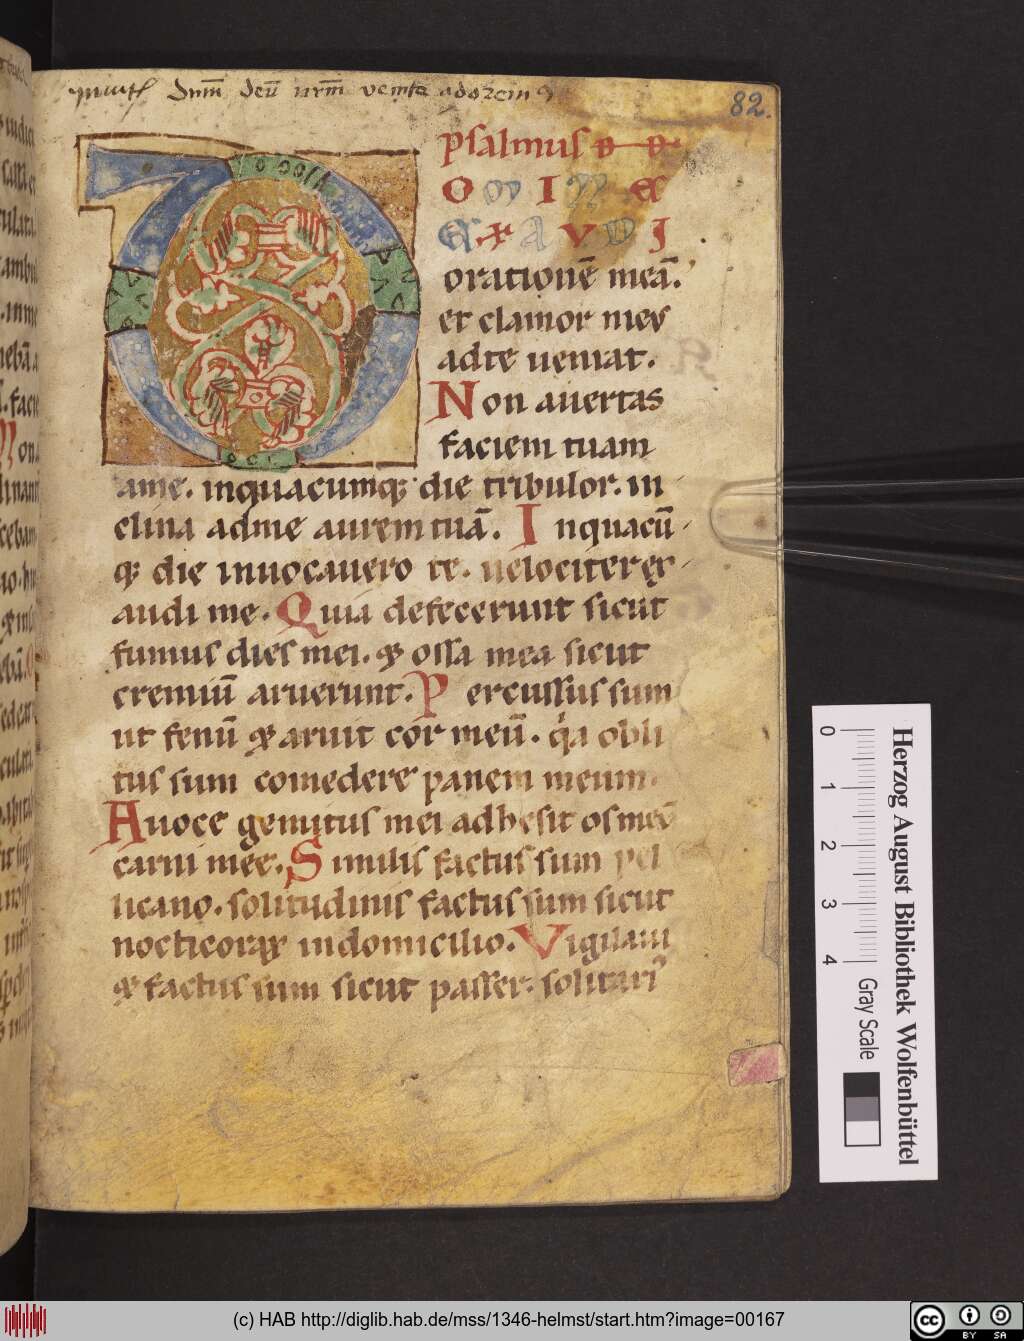 Dnm̄ deū nr̄m venite adorem9
82.
psalmus D D
D O MI NE
EXAVDI
orationē meā.
et clamor meus
adte ueniat.
Non auertas
faciem tuam
ame. inquacumq; die tribulor. in
clina adme aurem tuā. Inquacū
q; die inuocauero te. uelociter ex
audi me. Quia defecerunt sicut
fumus dies mei. & ossa mea sicut
cremiū aruerunt. Percussus sum
ut fenū & aruit cor meū. q̇a obli
tus sum comedere panem meum.
Auoce gemitus mei adhesit os meū
carni meę. Similis factus sum pel
licano. solitudinis factus sum sicut
nocticorax indomicilio. Vigilaui
& factus sum sicut passer. solitari9
Herzog August Bibliothek Wolfenbüttel
0 1 2 3 4
Gray Scale
(c) HAB http://diglib.hab.de/mss/1346-helmst/start.htm?image=00167
cc BY SA